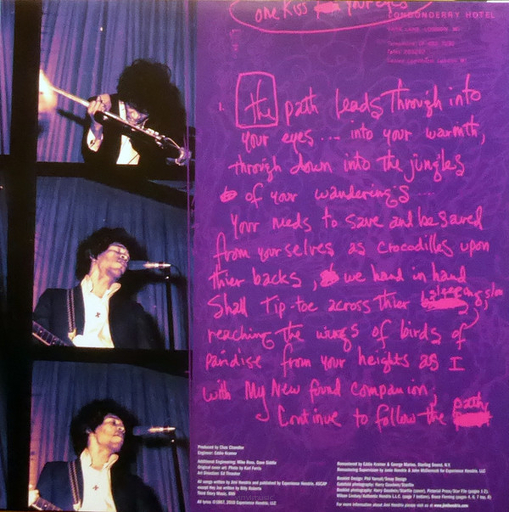 one Kiss your eyes
LONDONDERRY HOTEL
1. the path leads through into
your eyes .... into your warmth,
through down into the jungles
of your wandering's ....
Your needs to save and be saved
from yourselves as crocodiles upon
thier backs, we hand in hand
Shall Tip-toe across thier
reaching the wings of birds of
paridise from your heights as I
with My New found companion,
Continue to follow the path
Produced by Chas Chandler
Engineer: Eddie Kramer
Additional Engineering: Mike Ross, Dave Siddle
Original cover art: Photo by Karl Ferris
Art Direction: Ed Thrasher
All songs written by Jimi Hendrix and published by Experience Hendrix, ASCAP
except Hey Joe written by Billy Roberts
Third Story Music, BMI
Remastered by Eddie Kramer & George Marino, Sterling Sound, N.Y.
Remastering Supervision by Janie Hendrix & John McDermott for Experience Hendrix, LLC
For more information about Jimi Hendrix please visit us at www.jimihendrix.com